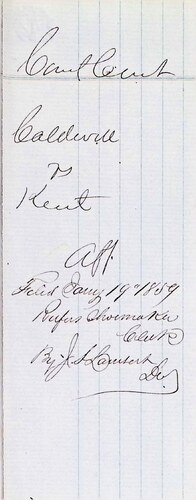 Court Court
Caldwell
vs
Kent
Aff.
Filed Jany 19th 1859
Rufus Shoemaker
Clerk
By J. S. Lambert
Dy.